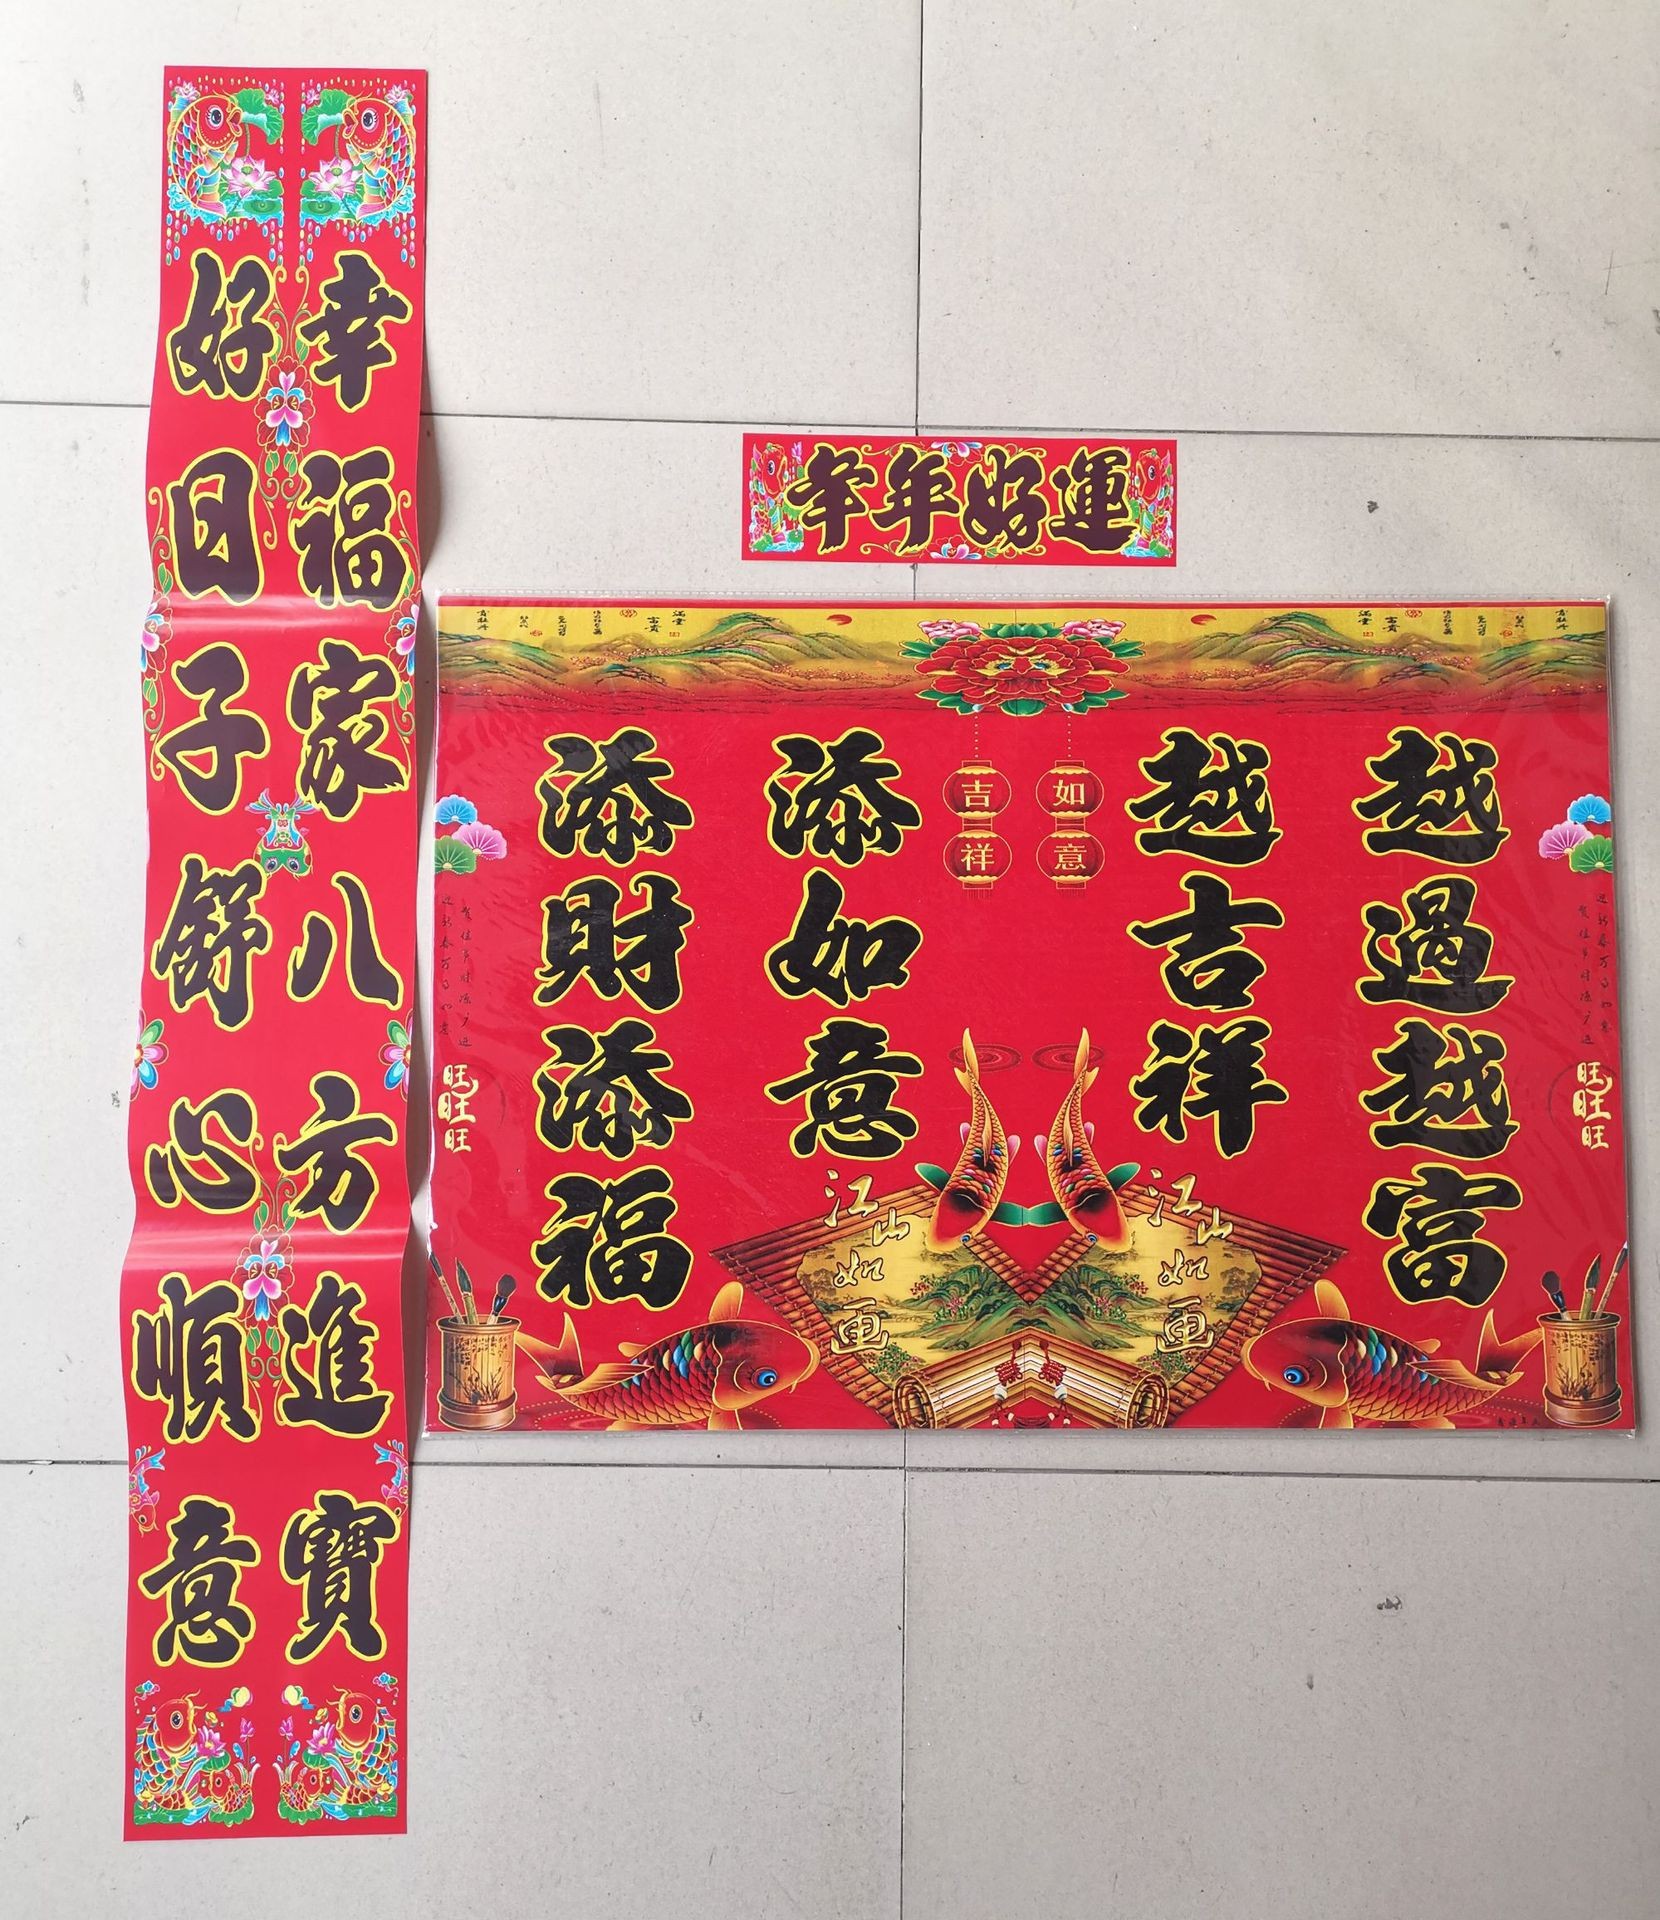 幸福家八方進寶
好日子舒心順意
年年好運
越過越富
越吉祥
添如意
添財添福
如意
吉祥
江山如画
江山如画
旺旺旺
旺旺旺